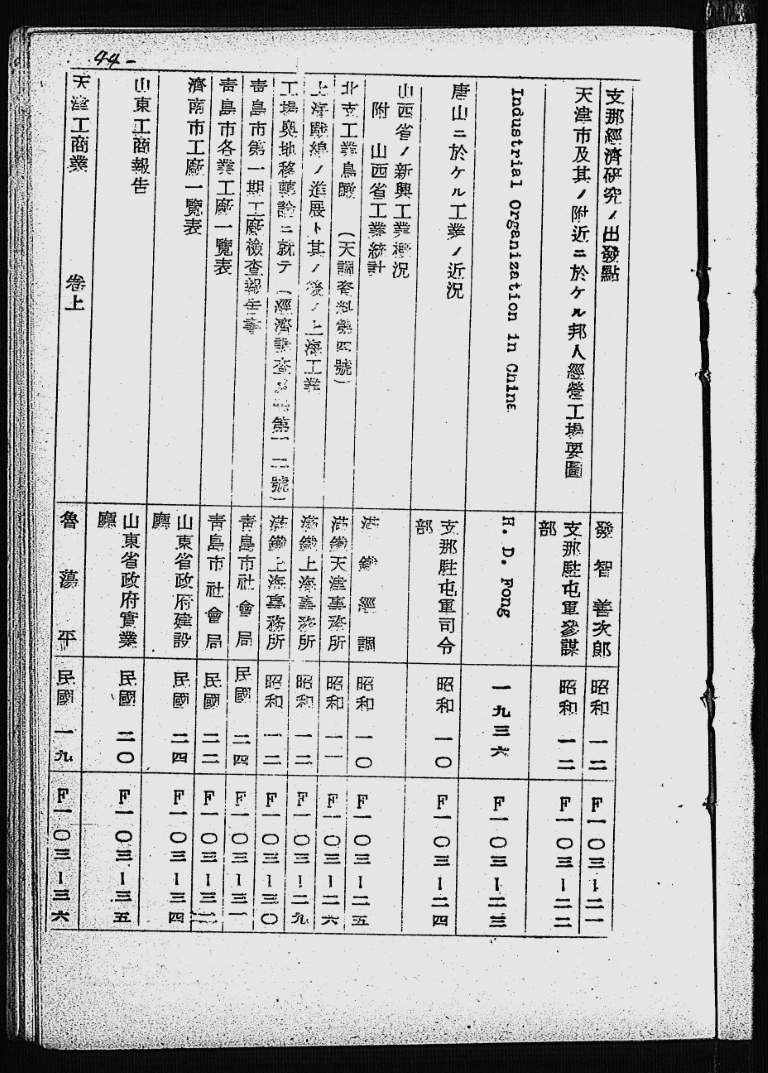 44-
支那經濟硏究ノ出發點
發智善次郎
昭和 一二
F一〇三-二一
天津市及其ノ附近ニ於ケル邦人經營工場要圖
支那駐屯軍參謀部
昭和 一二
F一〇三-二二
Industrial Organization in China
H. D. Fong
一九三六
F一〇三-二三
唐山ニ於ケル工業ノ近況
支那駐屯軍司令部
昭和 一〇
F一〇三-二四
山西省ノ新興工業槪況
附 山西省工業統計
滿鐵經調
昭和 一〇
F一〇三-二五
北支工業鳥瞰 (天調資料第四號)
滿鐵天津事務所
昭和 一一
F一〇三-二六
上海戰線ノ進展ト其ノ後ノ上海工業
滿鐵上海事務所
昭和 一二
F一〇三-二九
工場奧地移轉論ニ就テ (經濟調査 第一二號)
滿鐵上海事務所
昭和 一二
F一〇三-三〇
靑島市第一期工廠檢查報吿書
靑島市社會局
民國 二四
F一〇三-三一
靑島市各業工廠一覽表
靑島市社會局
民國 二二
F一〇三-三二
濟南市工廠一覽表
山東省政府建設廳
民國 二四
F一〇三-三四
山東工商報告
山東省政府實業廳
民國 二〇
F一〇三-三五
天津工商業 卷上
魯蕩平
民國 一九
F一〇三-三六